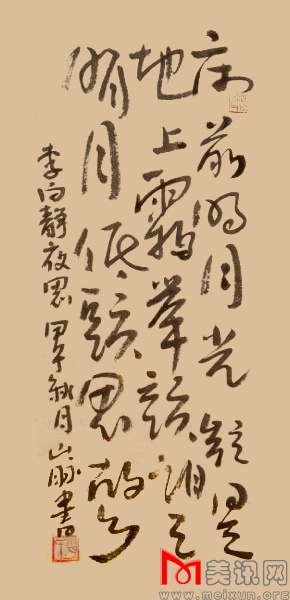 床前明月光疑是
地上霜舉頭望
明月低頭思故乡
李白靜夜思 甲午秋月山脉書
美讯网
www.meixun.org